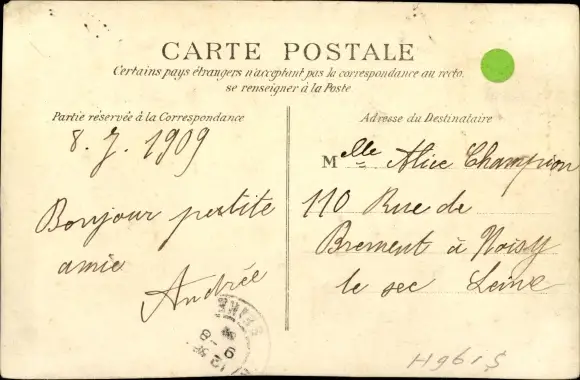 CARTE POSTALE
Certains pays étrangers n'acceptant pas la correspondance au recto,
se renseigner à la Poste
Partie réservée à la Correspondance
8. 7. 1909
Bonjour pertite
amie
Andrée
Adresse du Destinataire
Melle Alice Champion
110 Rue de
Brement à Noisy
le sec Seine
H961S